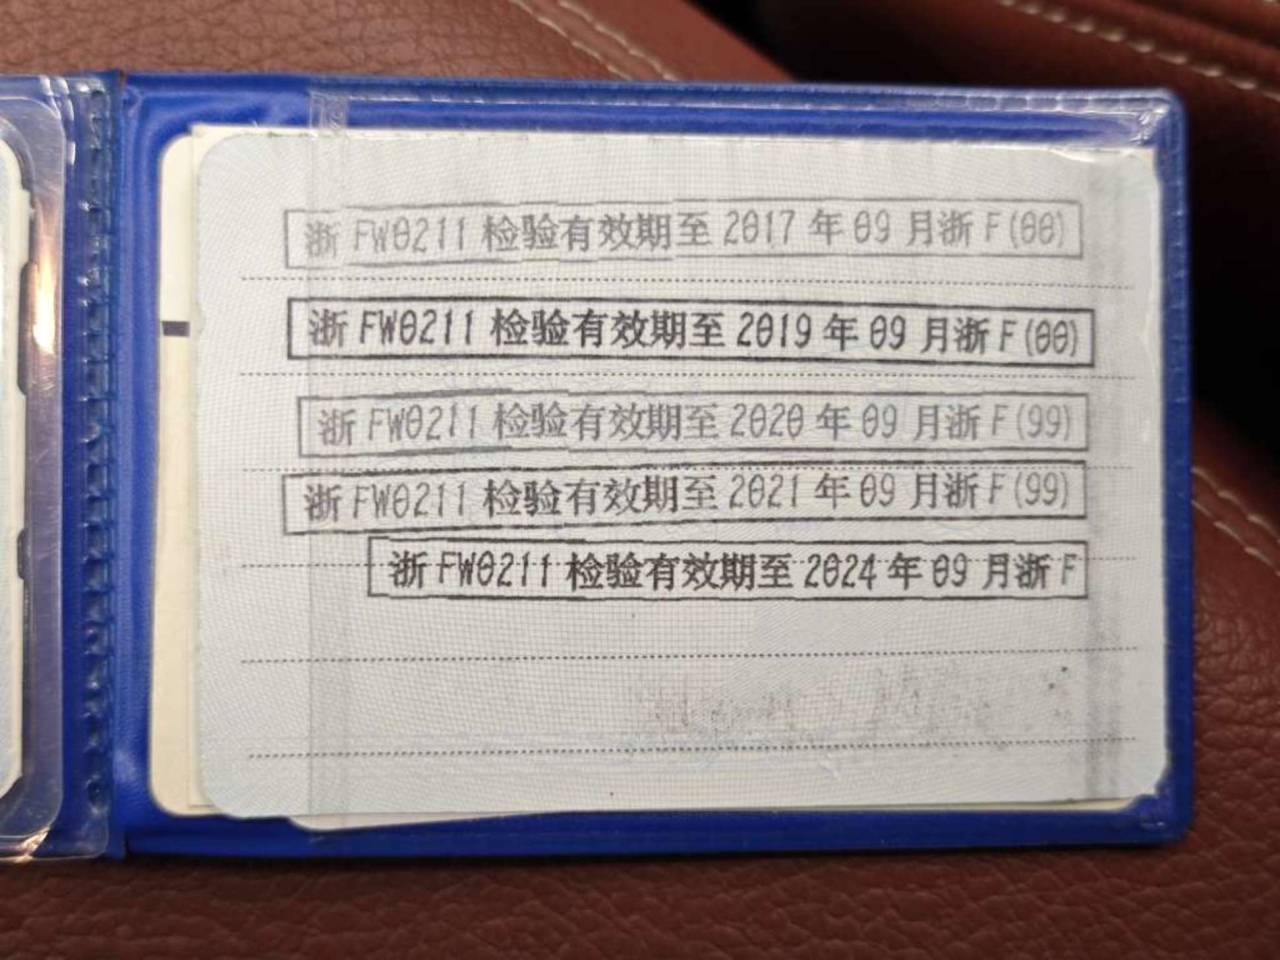 浙 FW0211 检验有效期至 2017 年 09 月浙 F(00)
浙 FW0211 检验有效期至 2019 年 09 月浙 F(00)
浙 FW0211 检验有效期至 2020 年 09 月浙 F(99)
浙 FW0211 检验有效期至 2021 年 09 月浙 F(99)
浙 FW0211 检验有效期至 2024 年 09 月浙 F